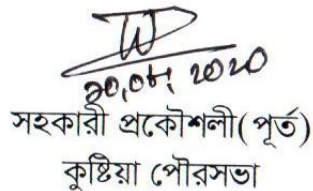 ২০,০৮, 2020
সহকারী প্রকৌশলী( পূর্ত)
কুষ্টিয়া পৌরসভা